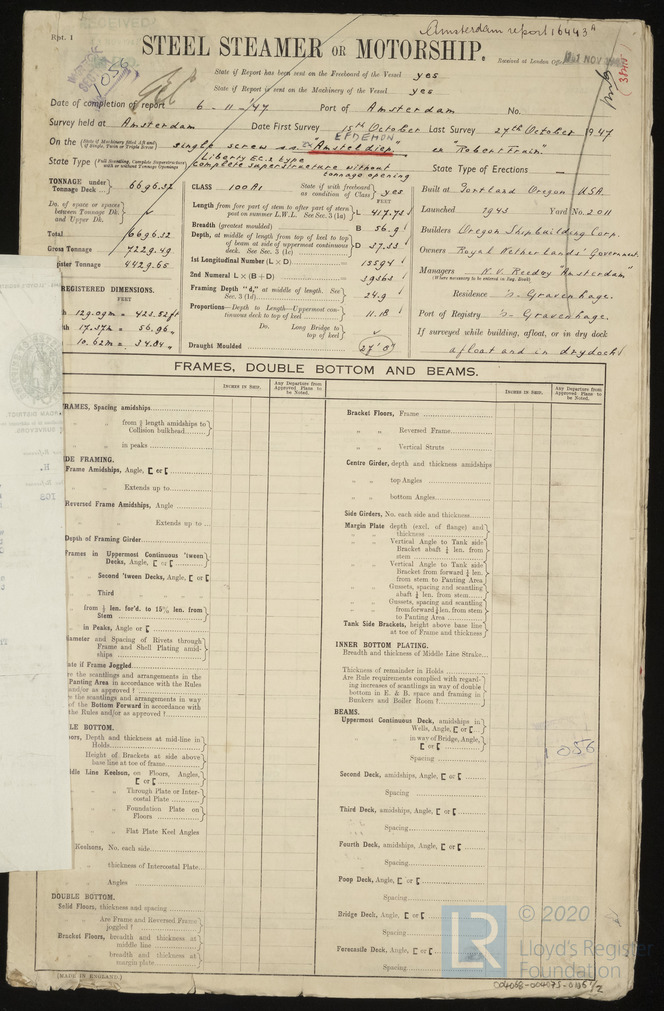 Rpt. 1
RECEIVED
Amsterdam report 16443ᴬ
STEEL STEAMER OR MOTORSHIP.
Received at London Office
NOV
State if Report has been sent on the Freeboard of the Vessel yes
State if Report is sent on the Machinery of the Vessel yes
1056
Date of completion of report 6-11-47 Port of Amsterdam No.
Survey held at Amsterdam Date First Survey 15th October Last Survey 27th October 1947
EFDEMON
On the single screw ss "Amsteldiep" ex "Robert Train"
Liberty EC.2 type
State Type complete superstructure without tonnage opening
State Type of Erections —
TONNAGE under Tonnage Deck... 6696.32
Do. of space or spaces between Tonnage Dk. and Upper Dk.
Total 6696.32
Gross Tonnage 7229.49
Register Tonnage 4429.65
REGISTERED DIMENSIONS.
FEET
129.09 m = 423.52 ft
17.37 m = 56.96 "
10.62 m = 34.84 "
CLASS 100A1 State if with freeboard as condition of Class yes
FEET
Length from fore part of stem to after part of stern post on summer L.W.L. See Sec. 3 (1a) L 417.73
Breadth (greatest moulded) B 56.9
Depth, at middle of length from top of keel to top of beam at side of uppermost continuous deck. See Sec. 3 (1c) D 37.33
1st Longitudinal Number (L × D) 15594
2nd Numeral L × (B + D) 39363
Framing Depth "d," at middle of length. See Sec. 3 (1d) 24.9
Proportions—Depth to Length—Uppermost continuous deck to top of keel 11.18
Do. Long Bridge to top of keel
Draught Moulded 27'.8"
Built at Portland Oregon USA.
Launched 1943 Yard No. 2011
Builders Oregon Shipbuilding Corp.
Owners Royal Netherlands' Government.
Managers N.V. Reedery "Amsterdam"
(Where necessary to be entered in Reg. Book)
Residence 's-Gravenhage.
Port of Registry 's-Gravenhage.
If surveyed while building, afloat, or in dry dock
afloat and in drydock
FRAMES, DOUBLE BOTTOM AND BEAMS.
INCHES IN SHIP.
Any Departure from Approved Plans to be Noted.
INCHES IN SHIP.
Any Departure from Approved Plans to be Noted.
FRAMES, Spacing amidships
" " from ½ length amidships to Collision bulkhead
" " in peaks
DE FRAMING.
Frame Amidships, Angle, [ or [
" " Extends up to
Reversed Frame Amidships, Angle
" " Extends up to
Depth of Framing Girder
Frames in Uppermost Continuous 'tween Decks, Angle, [ or [
" Second 'tween Decks, Angle, [ or [
" Third " " "
" from ½ len. for'd. to 15% len. from Stem
" in Peaks, Angle or [
ameter and Spacing of Rivets through Frame and Shell Plating amidships
ate if Frame Joggled
re the scantlings and arrangements in the Panting Area in accordance with the Rules and/or as approved !
e the scantlings and arrangements in way of the Bottom Forward in accordance with the Rules and/or as approved !
LE BOTTOM.
oors, Depth and thickness at mid-line in Holds
Height of Brackets at side above base line at toe of frame
ddle Line Keelson, on Floors, Angles, [ or [
" " Through Plate or Intercostal Plate
" " Foundation Plate on Floors
" " Flat Plate Keel Angles
Keelsons, No. each side
" thickness of Intercostal Plate
" Angles
DOUBLE BOTTOM.
Solid Floors, thickness and spacing
" " Are Frame and Reversed Frame joggled !
Bracket Floors, breadth and thickness at middle line
" " breadth and thickness at margin plate
[MADE IN ENGLAND.]
Bracket Floors, Frame
" " Reversed Frame
" " Vertical Struts
Centre Girder, depth and thickness amidships
" " top Angles
" " bottom Angles
Side Girders, No. each side and thickness
Margin Plate depth (excl. of flange) and thickness
" " Vertical Angle to Tank side Bracket abaft ¼ len. from stem
" " Vertical Angle to Tank side Bracket from forward ¼ len. from stem to Panting Area
" " Gussets, spacing and scantling abaft ¼ len. from stem
" " Gussets, spacing and scantling from forward ¼ len. from stem to Panting Area
Tank Side Brackets, height above base line at toe of Frame and thickness
INNER BOTTOM PLATING.
Breadth and thickness of Middle Line Strake
Thickness of remainder in Holds
Are Rule requirements complied with regarding increases of scantlings in way of double bottom in E. & B. space and framing in Bunkers and Boiler Room !
BEAMS.
Uppermost Continuous Deck, amidships in Wells, Angle, [ or [
" " in way of Bridge, Angle, [ or [
Spacing
Second Deck, amidships, Angle, [ or [
Spacing
Third Deck, amidships, Angle, [ or [
Spacing
Fourth Deck, amidships, Angle, [ or [
Spacing
Poop Deck, Angle, [ or [
Spacing
Bridge Deck, Angle, [ or [
Spacing
Forecastle Deck, Angle, [ or [
Spacing
1056
LR
© 2020
Lloyd's Register
Foundation
004068-004075-0165 1/2